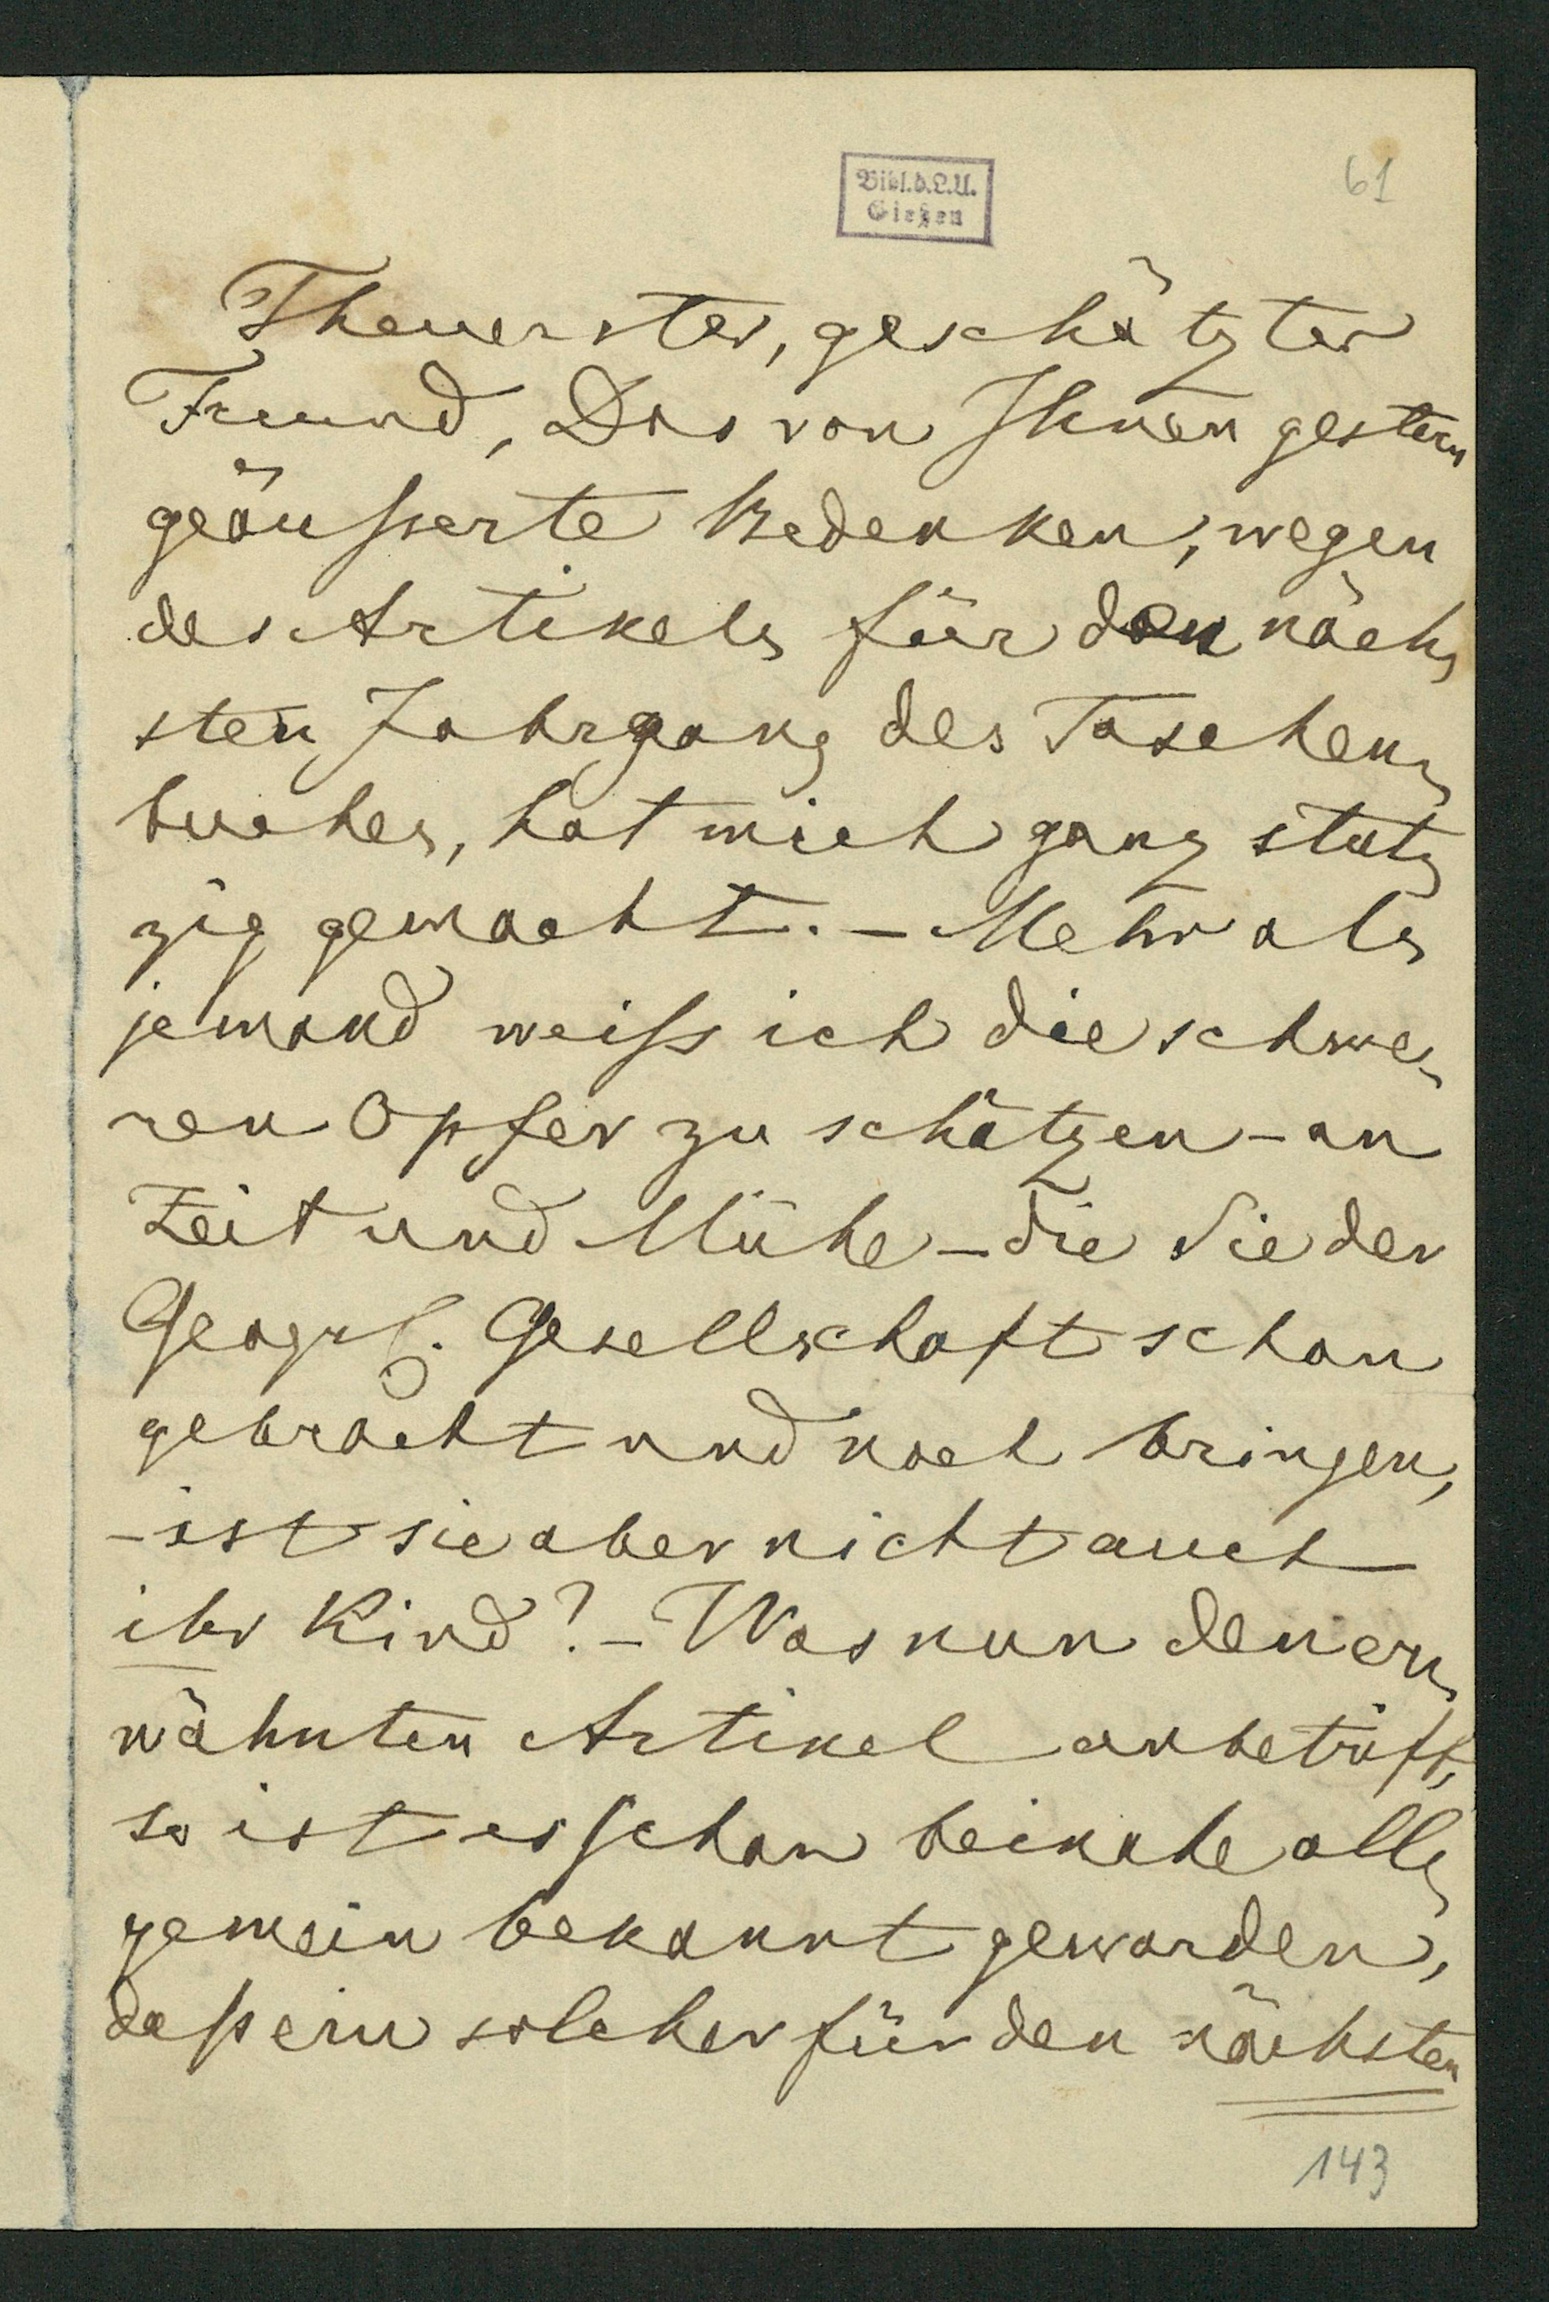 61
Bibl.d.L.U.
Gießen
Theuerster, geschätzter
Freund, Das von Ihnen gestern
geäusserte Bedenken, wegen
des Artikels für den näch-
sten Jahrgang des Taschen-
buches, hat mich ganz stut-
zig gemacht. – Mehr als
jemand weiss ich die schwe-
ren Opfer zu schätzen – an
Zeit und Mühe – die Sie der
Geogrf. Gesellschaft schon
gebracht und noch bringen,
– ist sie aber nicht auch
ihr Kind? – Was nun den er-
wähnten Artikel anbetrifft,
so ist es schon beinahe all-
gemein bekannt geworden,
dass ein solcher für den nächsten
143